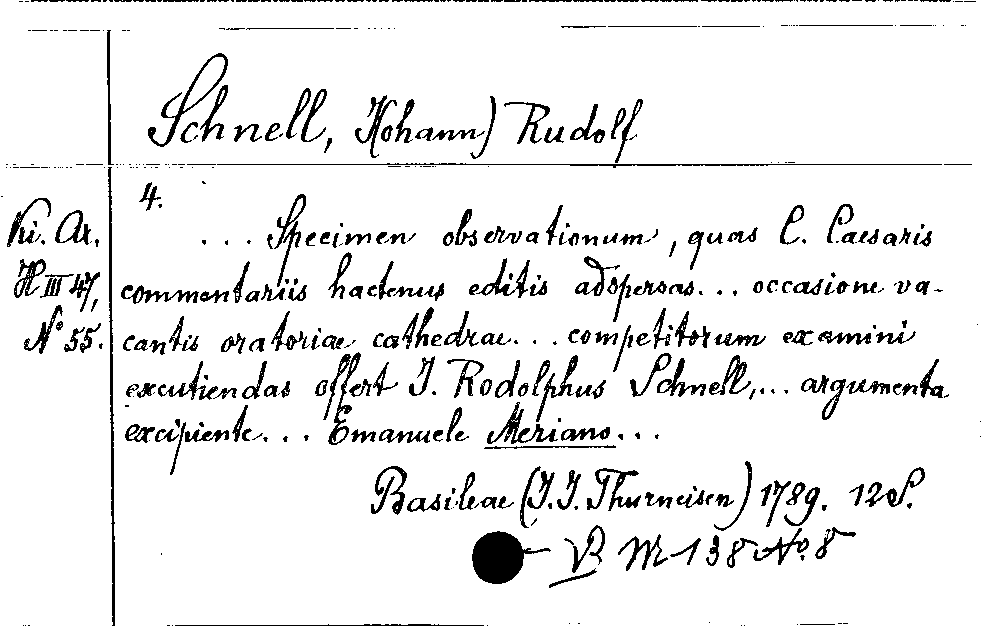 Schnell, J(ohann) Rudolf
4.
Ki. Ar.
H III 47,
No 55.
... Specimen observationum, quas C. Caesaris
commentariis hactenus editis adspersas... occasione va-
cantis oratoriae cathedrae... competitorum examini
excutiendas offert J. Rodolphus Schnell,... argumenta
excipiente... Emanuele Meriano...
Basileae (J. J. Thurneisen) 1789. 12 S.
138 No. 8